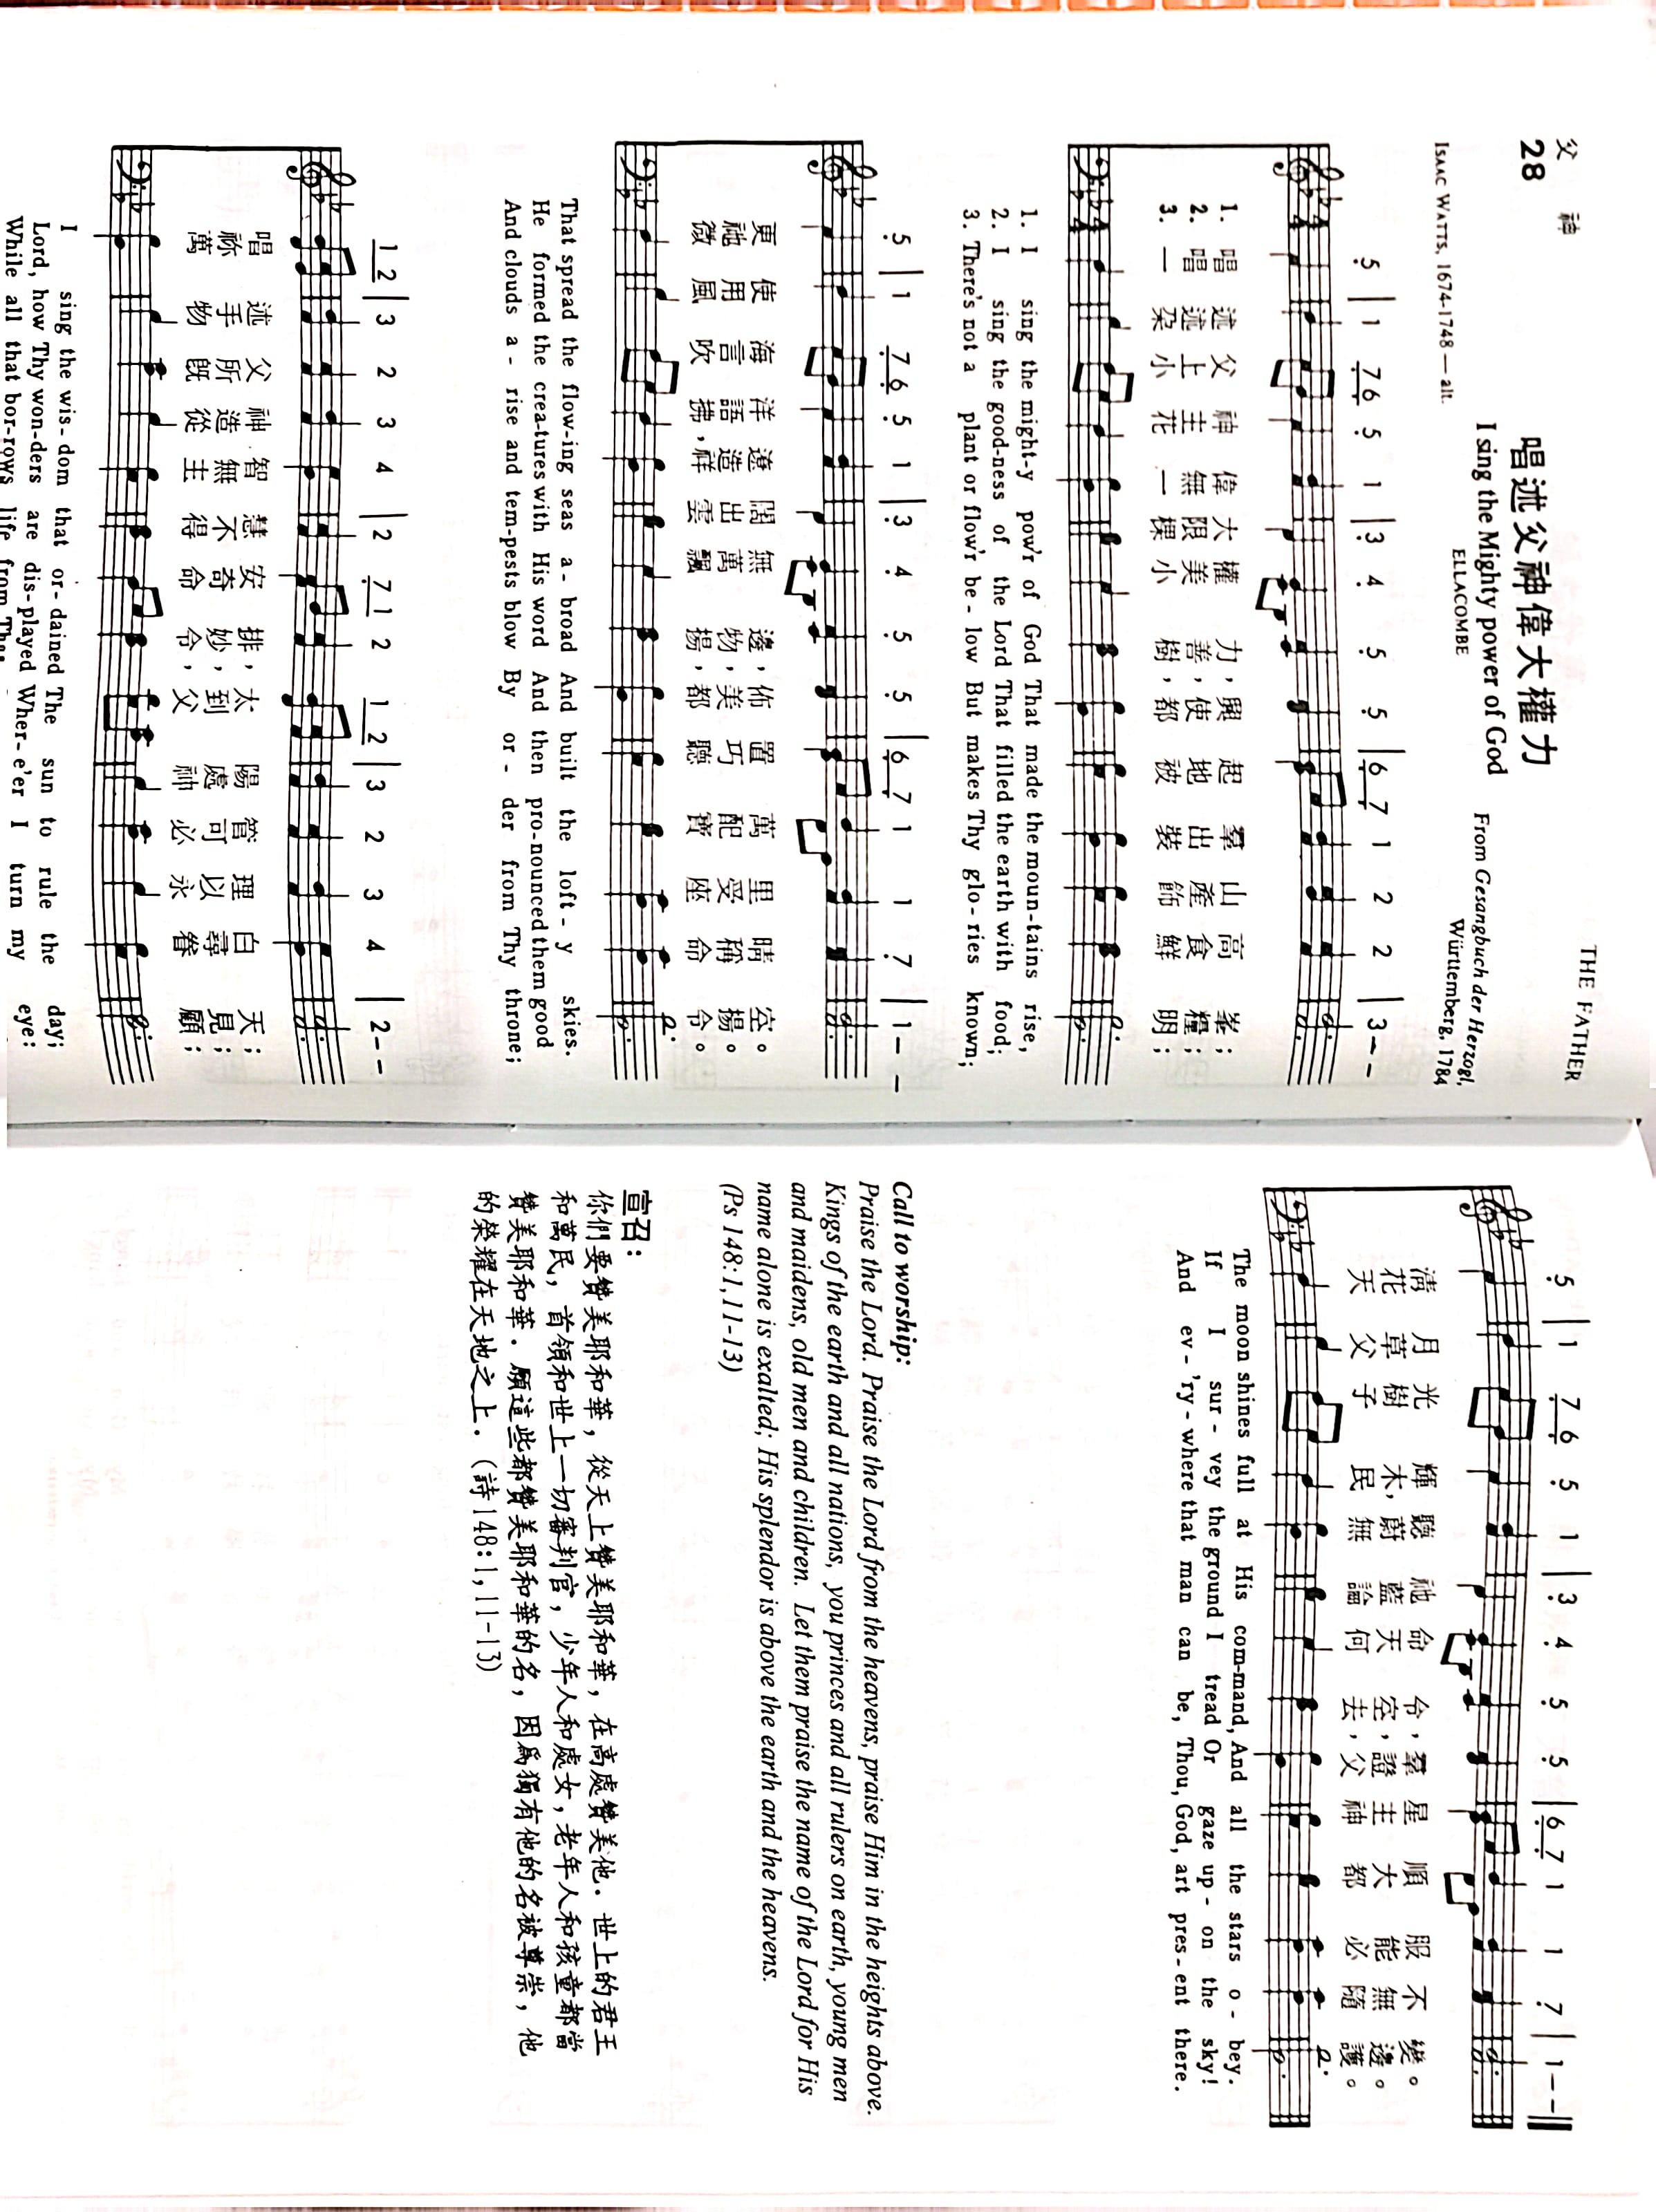 父 神
THE FATHER
28
唱述父神偉大權力
I sing the Mighty power of God
ELLACOMBE
ISAAC WATTS, 1674-1748 — alt.
From Gesangbuch der Herzogl,
Württemberg, 1784
5 | 1 7 6 5 1 | 3 4 5 5 | 6 7 1 2 2 | 3 - -
1. 唱 述 父 神 偉 大 權 力, 興 起 羣 山 高 峯;
2. 唱 述 上 主 無 限 美 善, 使 地 出 產 食 糧;
3. 一 朶 小 花 一 棵 小 樹, 都 被 裝 飾 鮮 明;
1. I sing the might-y pow'r of God That made the moun-tains rise,
2. I sing the good-ness of the Lord That filled the earth with food;
3. There's not a plant or flow'r be-low But makes Thy glo-ries known;
5 | 1 7 6 5 1 | 3 4 5 5 | 6 7 1 1 7 | 1 - -
更 使 海 洋 遼 闊 無 邊, 佈 置 萬 里 晴 空。
祂 用 言 語 造 出 萬 物, 美 巧 配 受 稱 揚。
微 風 吹 拂, 祥 雲 飄 揚, 都 聽 寶 座 命 令。
That spread the flow-ing seas a-broad And built the loft-y skies.
He formed the crea-tures with His word And then pro-nounced them good
And clouds a-rise and tem-pests blow By or-der from Thy throne;
1 2 | 3 2 3 4 | 2 7 1 2 1 2 | 3 2 3 4 | 2 - -
唱 述 父 神 智 慧 安 排, 太 陽 管 理 白 天;
祢 手 所 造 無 不 奇 妙, 到 處 可 以 尋 見;
萬 物 旣 從 主 得 命 令, 父 神 必 永 眷 顧;
I sing the wis-dom that or-dained The sun to rule the day;
Lord, how Thy won-ders are dis-played Wher-e'er I turn my eye:
While all that bor-rows life from Thee
5 | 1 7 6 5 1 | 3 4 5 5 | 6 7 1 1 7 | 1 - -
清 月 光 輝 聽 祂 命 令, 羣 星 順 服 不 變。
花 草 樹 木, 蔚 藍 天 空, 證 主 大 能 無 邊。
天 父 子 民 無 論 何 去, 父 神 都 必 隨 護。
The moon shines full at His com-mand, And all the stars o-bey.
If I sur-vey the ground I tread Or gaze up-on the sky!
And ev-'ry-where that man can be, Thou, God, art pres-ent there.
Call to worship:
Praise the Lord. Praise the Lord from the heavens, praise Him in the heights above.
Kings of the earth and all nations, you princes and all rulers on earth, young men
and maidens, old men and children. Let them praise the name of the Lord for His
name alone is exalted; His splendor is above the earth and the heavens.
(Ps 148:1,11-13)
宣召:
你們要贊美耶和華, 從天上贊美耶和華, 在高處贊美他. 世上的君王
和萬民, 首領和世上一切審判官, 少年人和處女, 老年人和孩童都當
贊美耶和華. 願這些都贊美耶和華的名, 因爲獨有他的名被尊崇, 他
的榮耀在天地之上. (詩148:1,11-13)